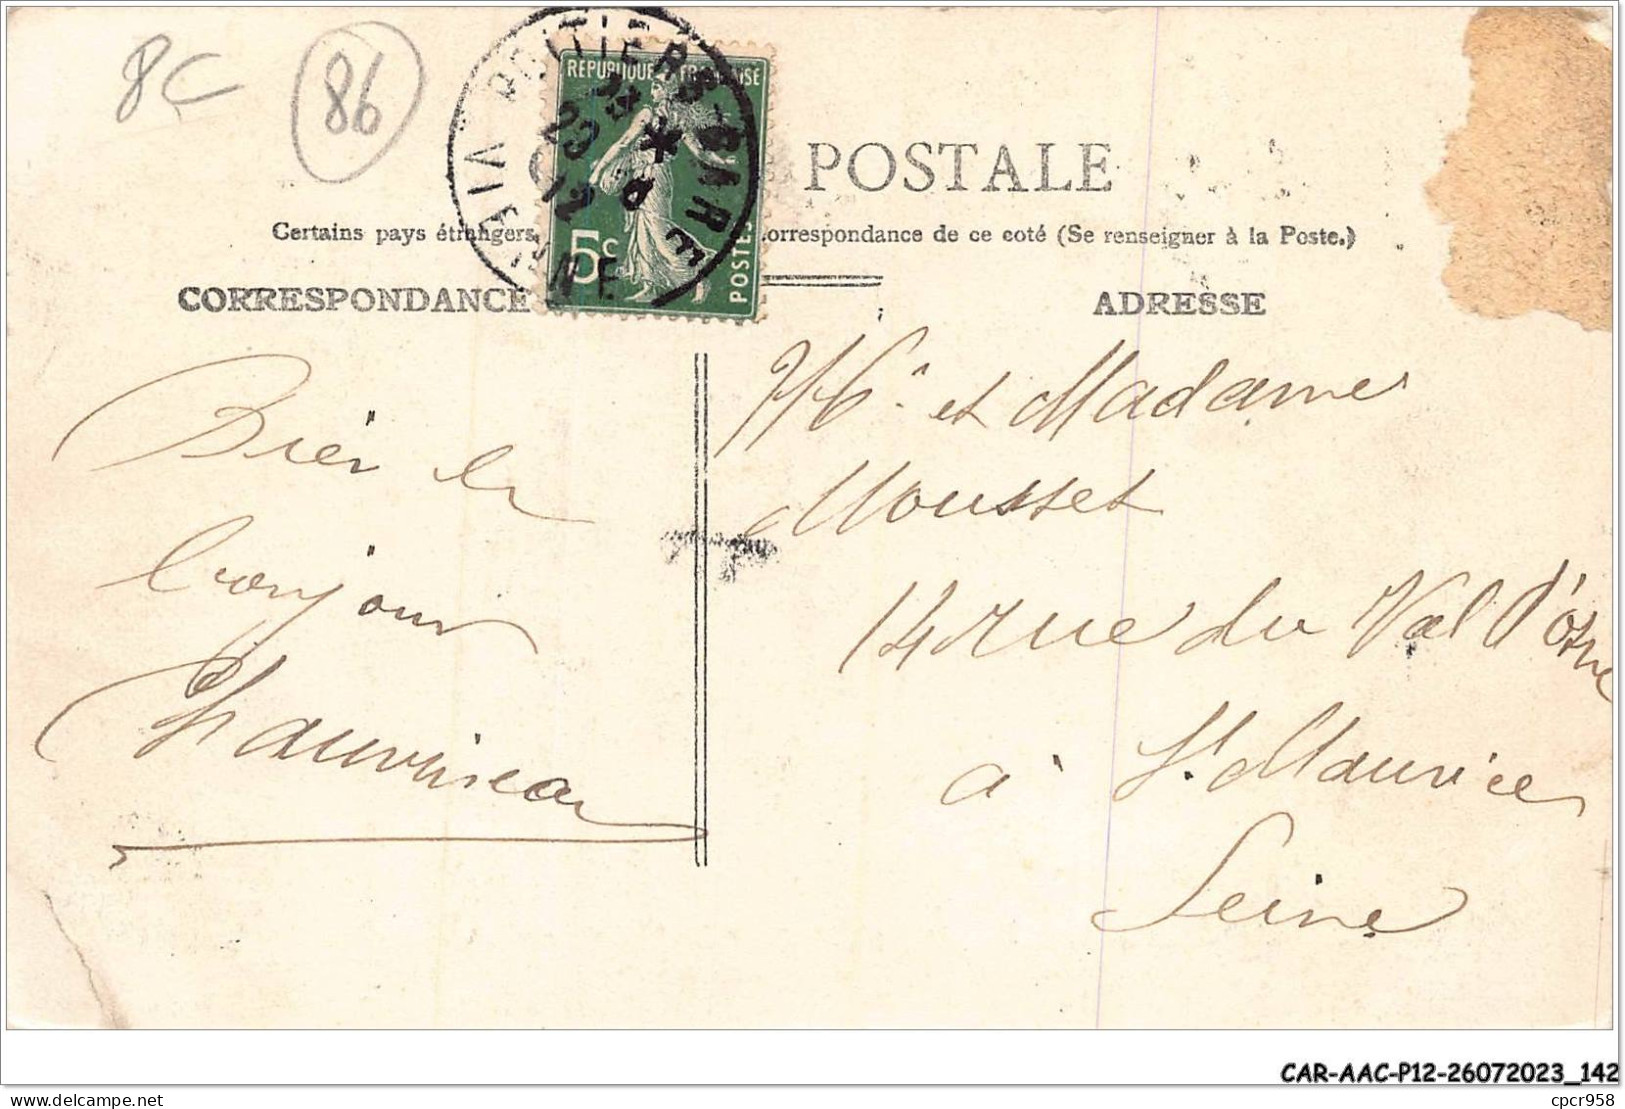 8C
86
POITIERS-GARE
VIENNE
23 *
REPUBLIQUE FRANÇAISE
5c
POSTES
POSTALE
Certains pays étrangers orrespondance de ce coté (Se renseigner à la Poste.)
CORRESPONDANCE
ADRESSE
Bien le
bonjour
Chauvineau
Mr et Madame
Mousset
14 rue du Val d'Osne
à St Maurice
Seine
CAR-AAC-P12-26072023_142
delcampe.net
cpcr958